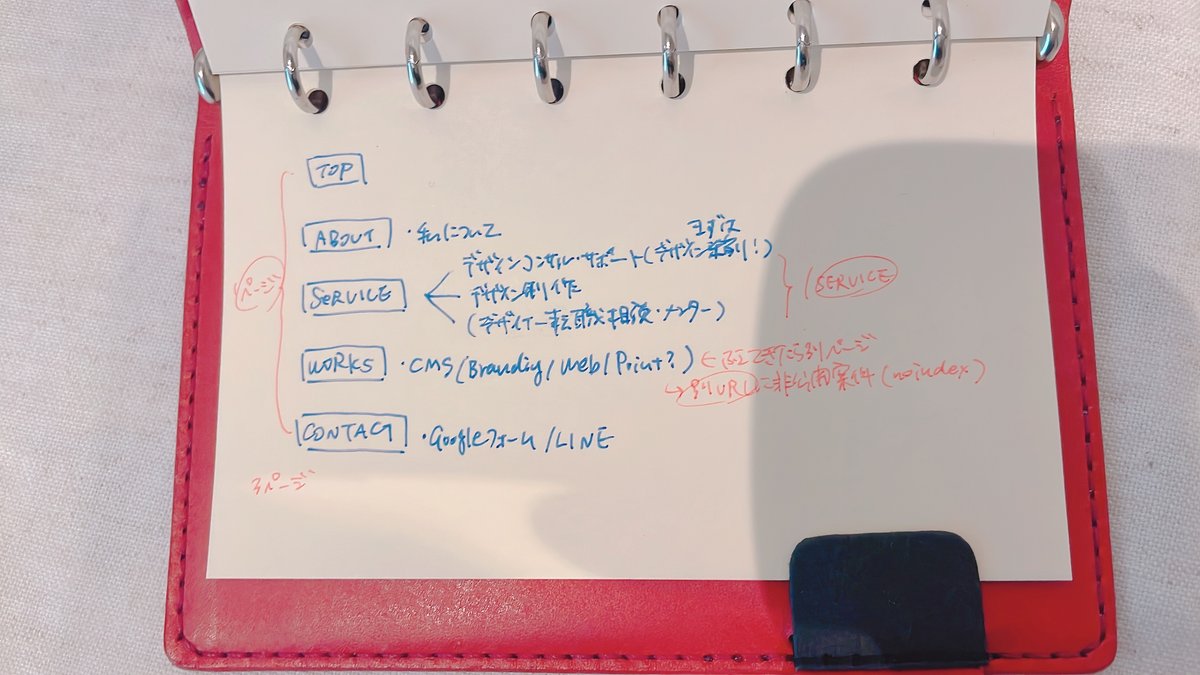 TOP
ABOUT ・私について
SERVICE
デザインコンサル・サポート(デザイン
デザイン制作
(デザイナー転職相談・メンター)
/SERVICE
ページ
WORKS ・CMS(Branding/Web/Print?)
できたら別ページ
↳別URLに非公開案件(noindex)
CONTACT ・Googleフォーム/LINE
ページ